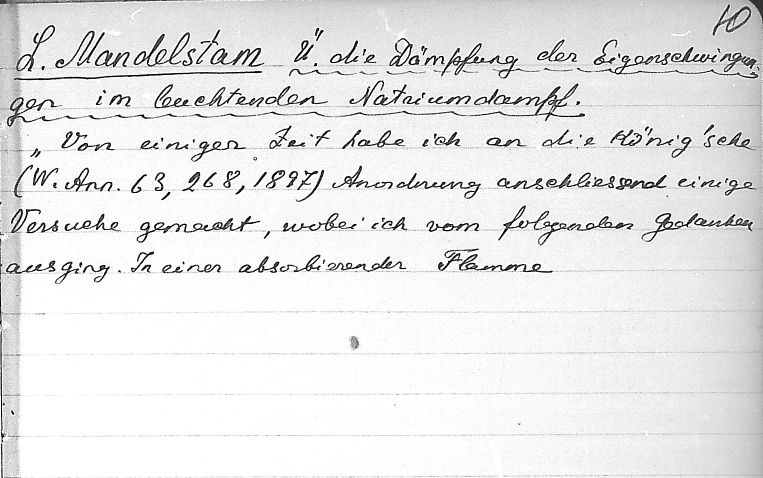 10
L. Mandelstam Ü. die Dämpfung der Eigenschwingun-
gen im leuchtenden Natriumdampf.
„Von einiger Zeit habe ich an die König'sche
(W. Ann. 63, 268, 1897) Anordnung anschliessend einige
Versuche gemacht, wobei ich vom folgenden Gedanken
ausging. In einer absorbierenden Flamme